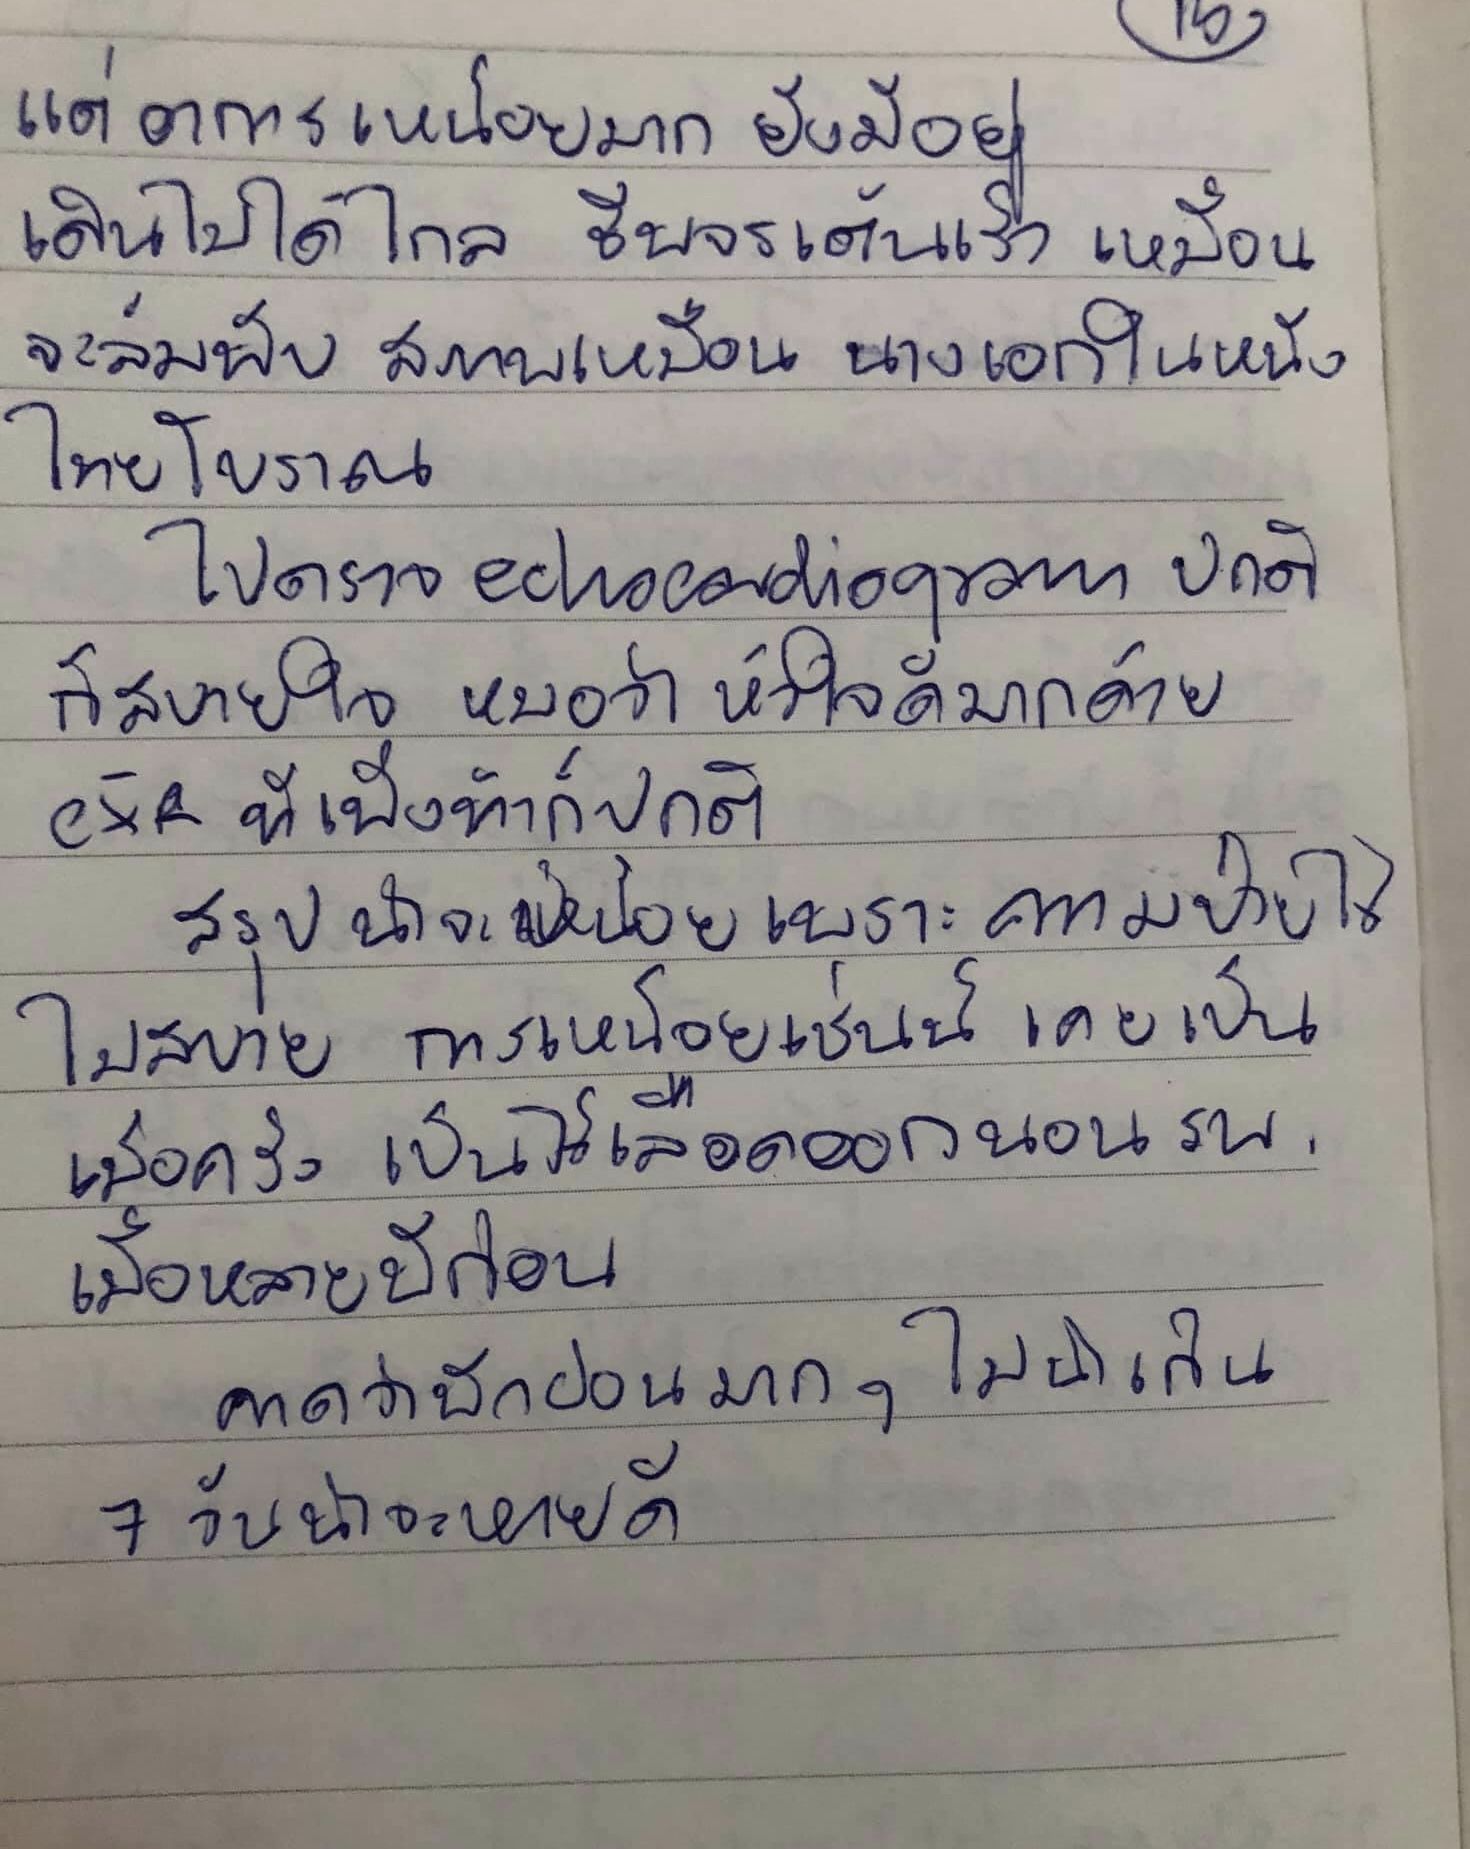 15
แต่อาการเหนื่อยมาก ยังมีอยู่
เดินไม่ได้ไกล ชีพจรเต้นเร็ว เหมือน
จะล้มพับ สภาพเหมือน นางเอกในหนัง
ไทยโบราณ
ไปตรวจ echocardiogram ปกติ
ก็สบายใจ หมอว่า หัวใจดีมากด้วย
CXR ที่เพิ่งทำก็ปกติ
สรุป น่าจะเหนื่อยเพราะ ความป่วยไข้
ไม่สบาย การเหนื่อยเช่นนี้ เคยเป็น
เมื่อครั้ง เป็นไข้เลือดออกนอน รพ.
เมื่อหลายปีก่อน
คาดว่าพักผ่อนมากๆ ไม่น่าเกิน
7 วันน่าจะหายดี